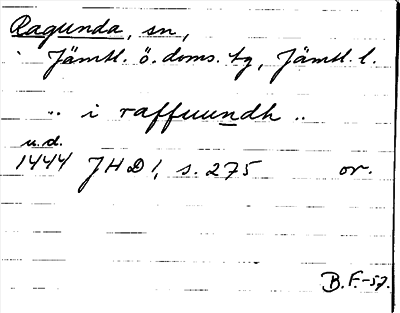 Ragunda, sn,
Jämtl. ö. doms. tg, Jämtl. l.
.. i raffuundh ..
u.d.
1444 JHD 1, s. 275 or.
B.F.-57.